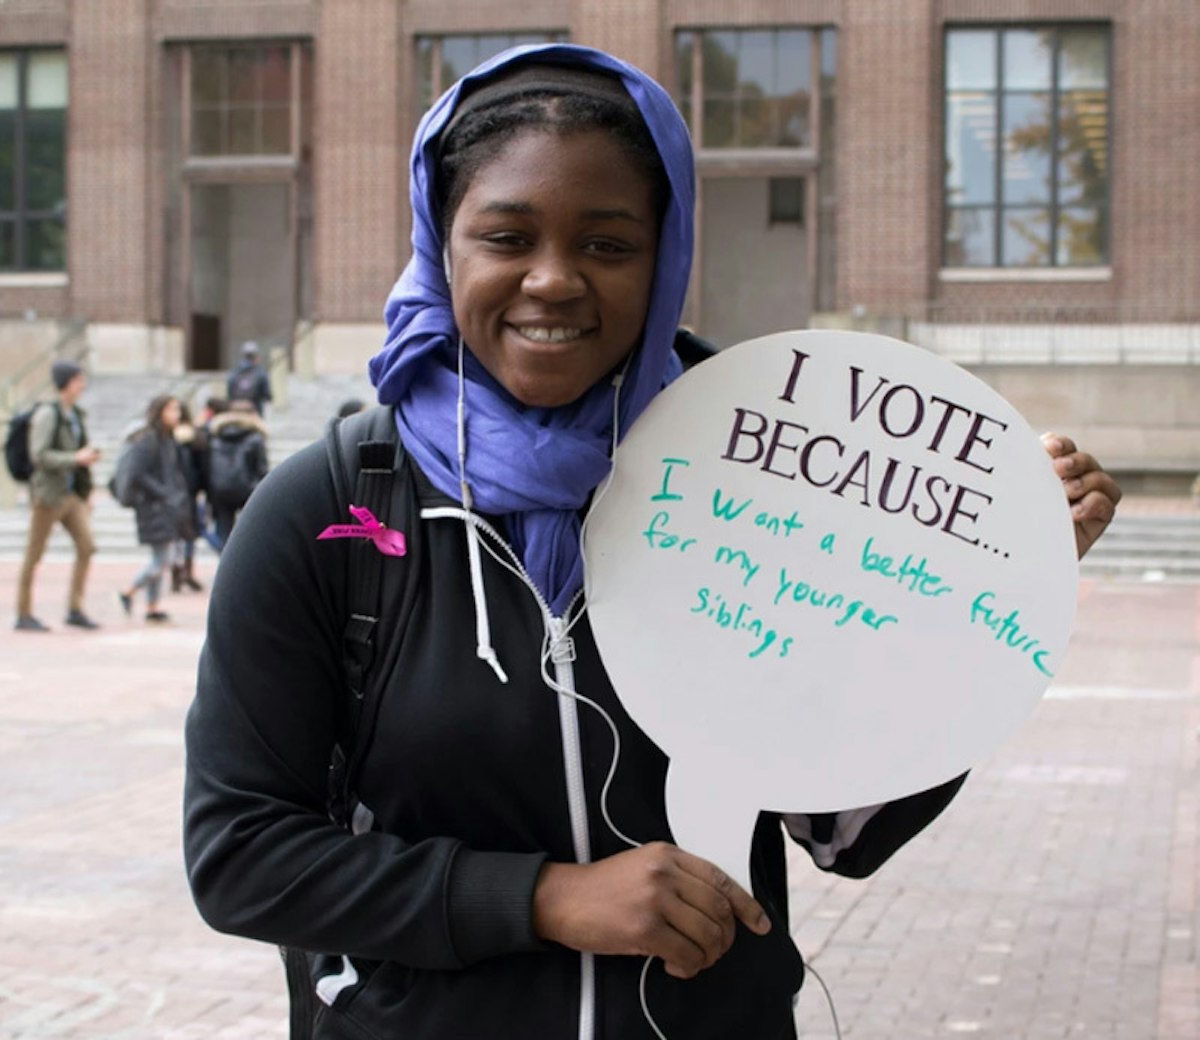 I VOTE
BECAUSE...
I want a better future
for my younger
siblings